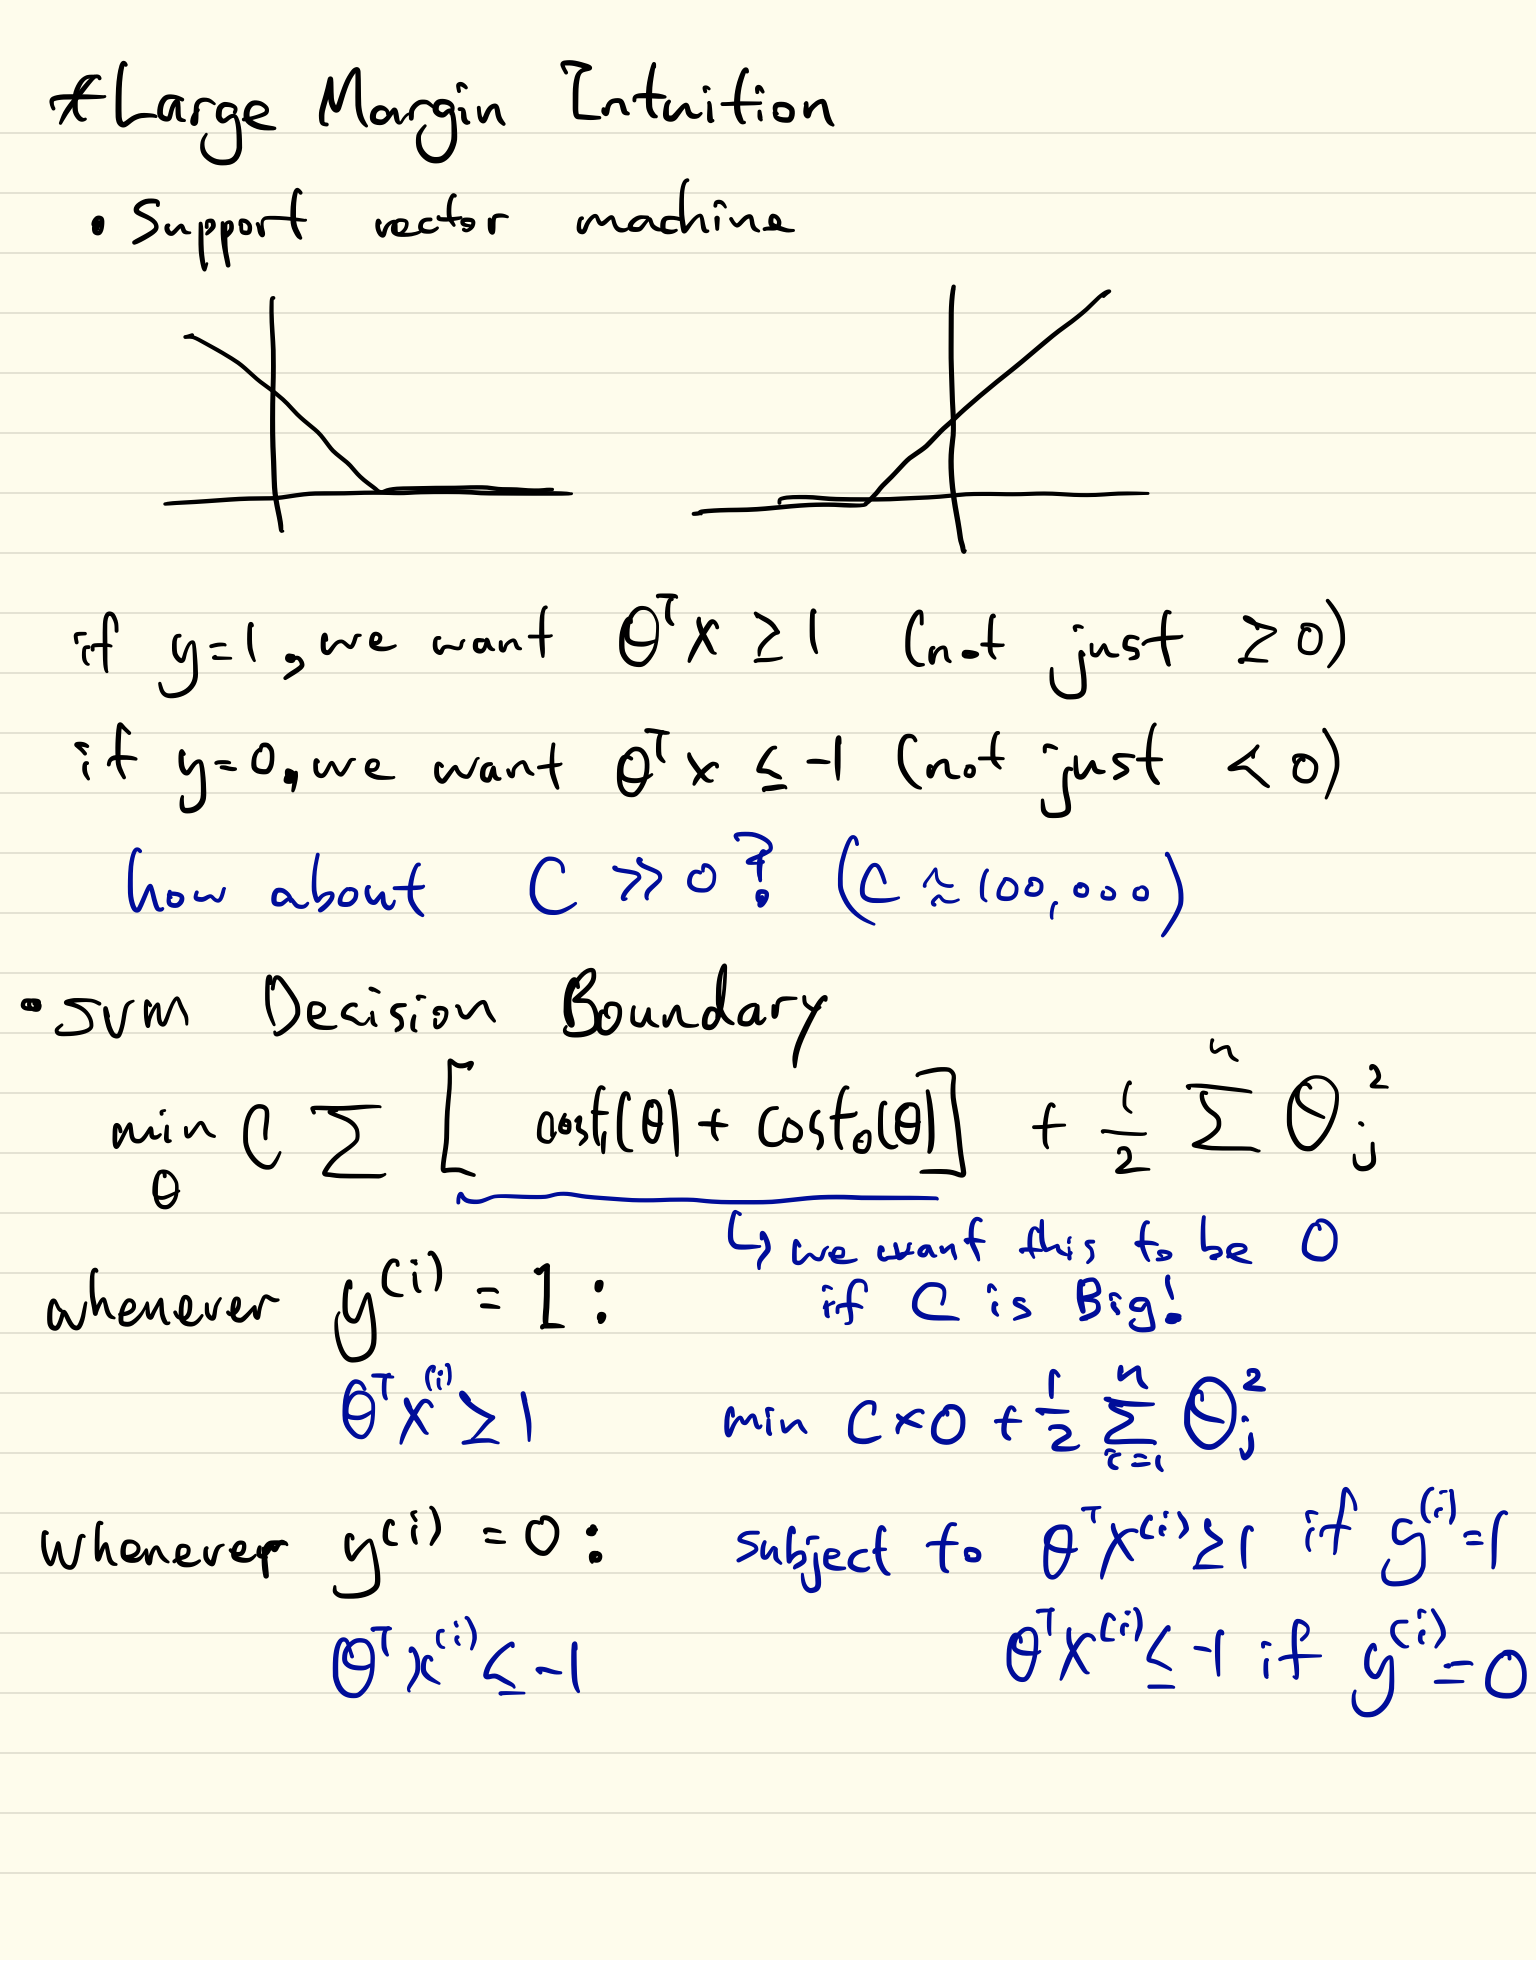 *Large Margin Intuition
• Support vector machine
if y=1, we want θᵀx ≥ 1 (not just ≥ 0)
if y=0, we want θᵀx ≤ -1 (not just < 0)
how about C ≫ 0? (C ≈ 100,000)
• SVM Decision Boundary
min_θ C Σ [cost₁(θ) + cost₀(θ)] + 1/2 Σⁿ θⱼ²
↳ we want this to be 0
if C is Big!
whenever y⁽ⁱ⁾ = 1:
θᵀx⁽ⁱ⁾ ≥ 1
min C×0 + 1/2 Σⁿᵢ₌₁ θⱼ²
whenever y⁽ⁱ⁾ = 0:
subject to θᵀx⁽ⁱ⁾ ≥ 1 if y⁽ⁱ⁾ = 1
θᵀx⁽ⁱ⁾ ≤ -1
θᵀx⁽ⁱ⁾ ≤ -1 if y⁽ⁱ⁾ = 0